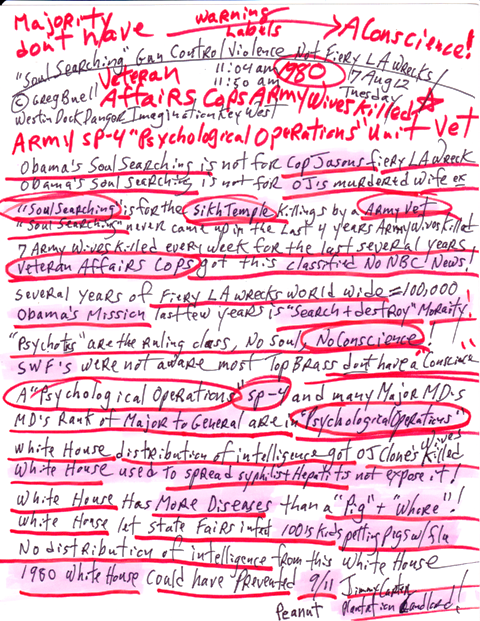 Majority warning
don't have Labels A Conscience!
"Soul Searching" Gun Control Violence Not Fiery LA wrecks!
Veteran 11:04 am 1980 7 Aug 12
© Greg Buell 11:50 am Tuesday
Affairs Cops Army Wives Killed
Westin Dock Imagination Key West
Army SP-4 "Psychological Operations" Unit Vet
Obama's Soul Searching is not for Cop Jasons fiery LA wreck
Obama's Soul Searching is not for OJ's murdered wife ex
"Soul Searching" is for the Sikh Temple killings by a Army Vet
"Soul Search" never came up in the Last 4 years Army Wives Killed
7 Army Wives Killed every week for the last several years!
Veteran Affairs Cops got this classified No NBC News!
Several years of Fiery LA wrecks world wide = 100,000
Obama's Mission last few years is "Search + destroy" Moraity!
"Psychotis" are the ruling class, No soul, No Conscience!
SWF's were not aware most Top Brass don't have a "Conscience"
A "Psychological Operations" SP-4 and many Major MD's
MD's Rank of Major to General are in "Psychological Operations"
White House distribution of intelligence got OJ Clones Wives Killed
White House used to spread syphilis + Hepatitis not expose it!
White House Has More Diseases than a "Pig" + "Whore"!
White House let State Fairs infect 100's kids petting pigs w/ flu
No distribution of intelligence from this White House
1980 White House Could have Prevented 9/11 Jimmy Carter
Peanut Plantation Landlord!